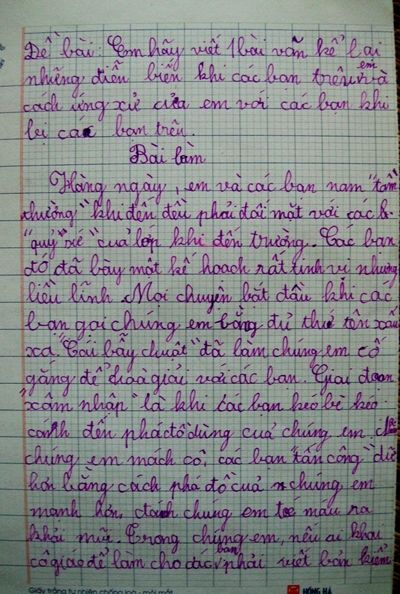 Đề bài: Em hãy viết 1 bài văn kể lại
những diễn biến khi các bạn trêu em và
cách ứng xử của em với các bạn khi
bị các bạn trêu.
Bài làm
Hàng ngày, em và các bạn nam "tầm
thường" khi đến đều phải đối mặt với các
"quý" "của lớp khi đến trường. Các bạn
đó đã bày một kế hoạch rất tinh vi nhưng
liều lĩnh. Mọi chuyện bắt đầu khi các
bạn gọi chúng em bằng đủ thứ tên xấu
xa. "Cái bẫy chuột" đã làm chúng em cố
gắng để hoà giải với các bạn. Giai đoạn
"xâm nhập" là khi các bạn kéo bè kéo
cánh đến phá đồ dùng của chúng em
chúng em mách cô, các bạn "tấn công" dữ
hơn bằng cách phá đồ của chúng em
mạnh hơn, đánh chúng em toé máu ra
khỏi mũi. Trong chúng em, nếu ai khai
cô giáo để làm cho các bạn phải viết bản kiểm
Giấy trắng tự nhiên chống loá - mỏi mắt
HỒNG HÀ